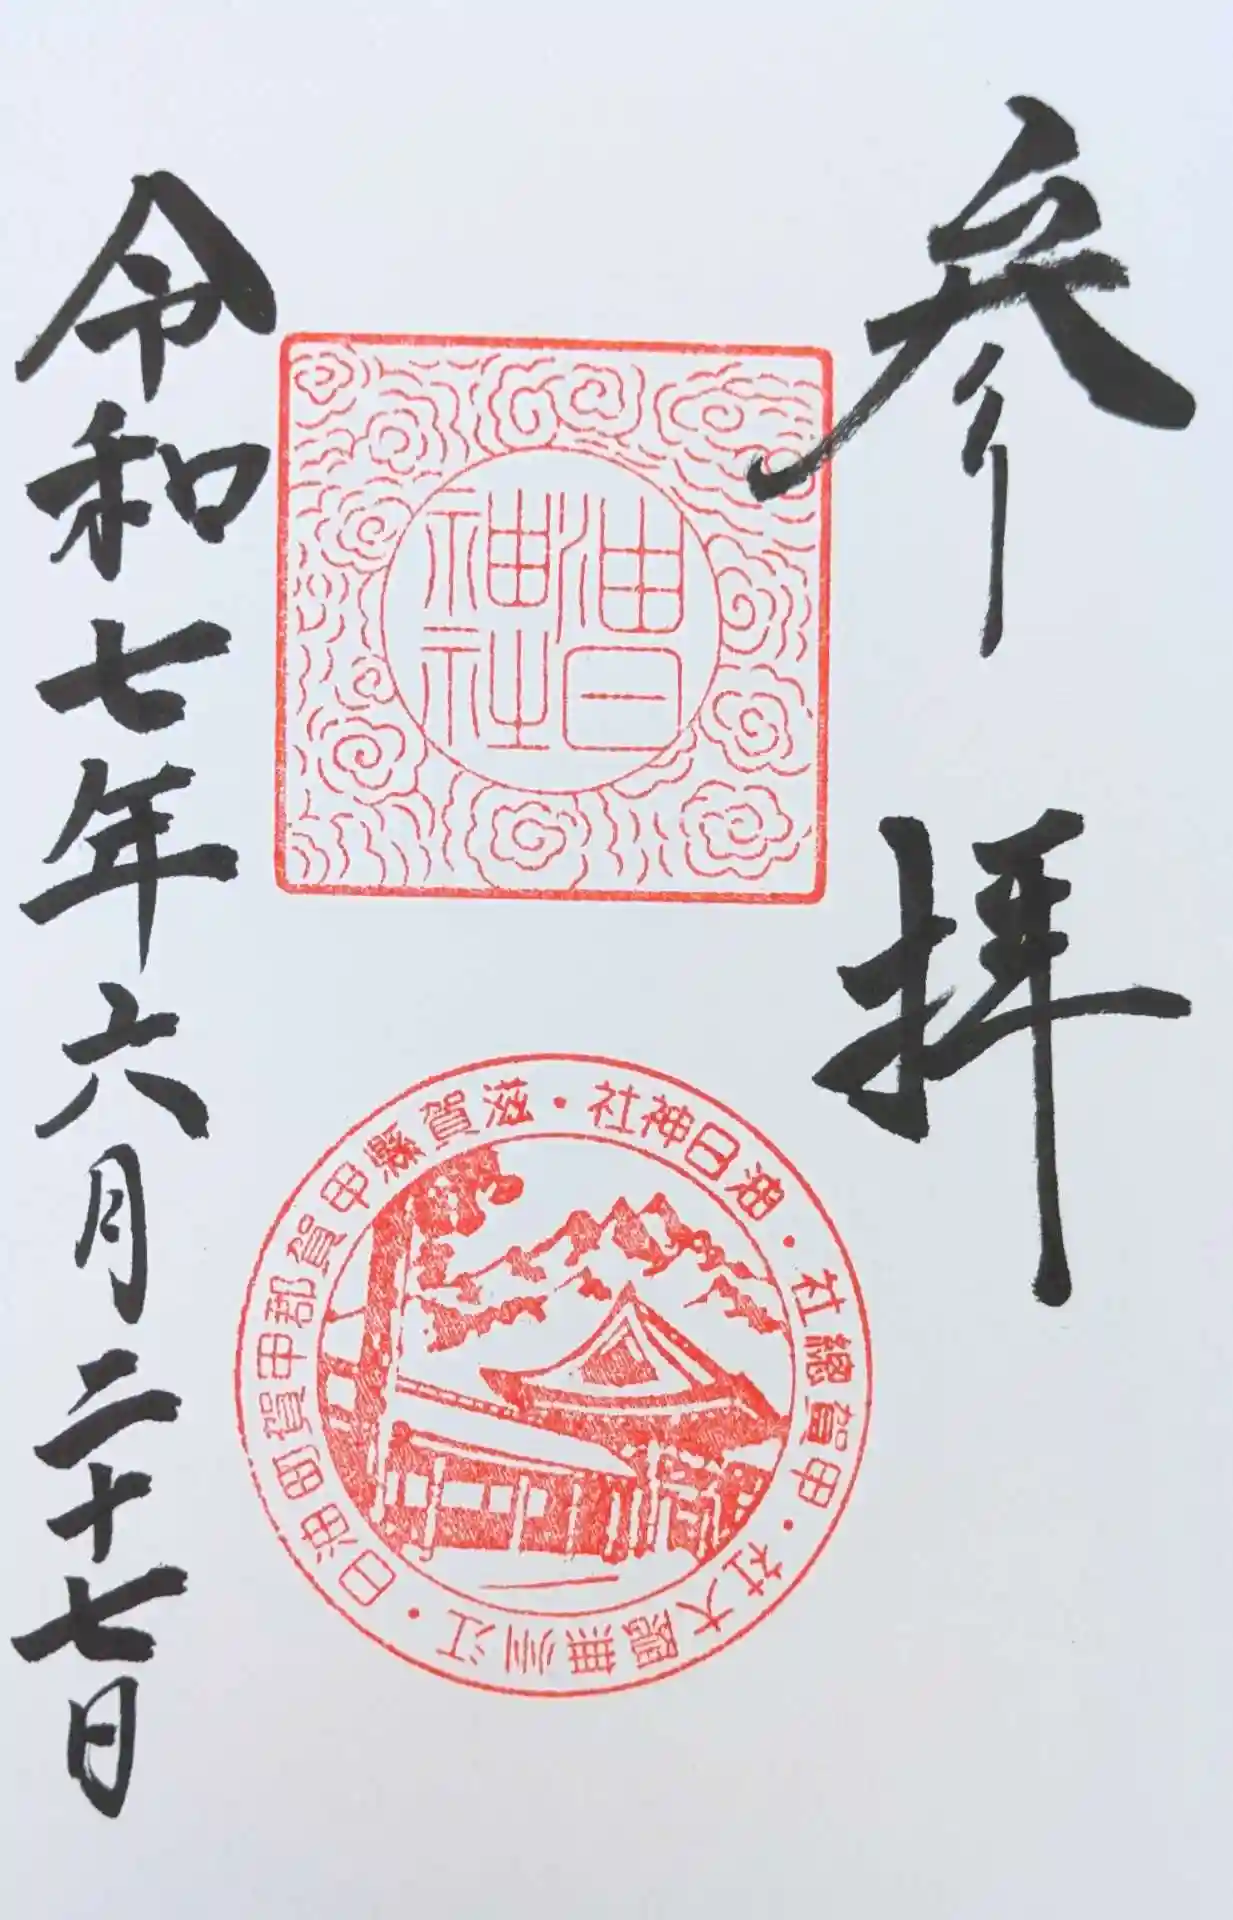 参拝
油日
神社
油日神社・滋賀縣甲賀郡甲賀町油日・江州無隈大社・甲賀總社・
令和七年六月二十七日